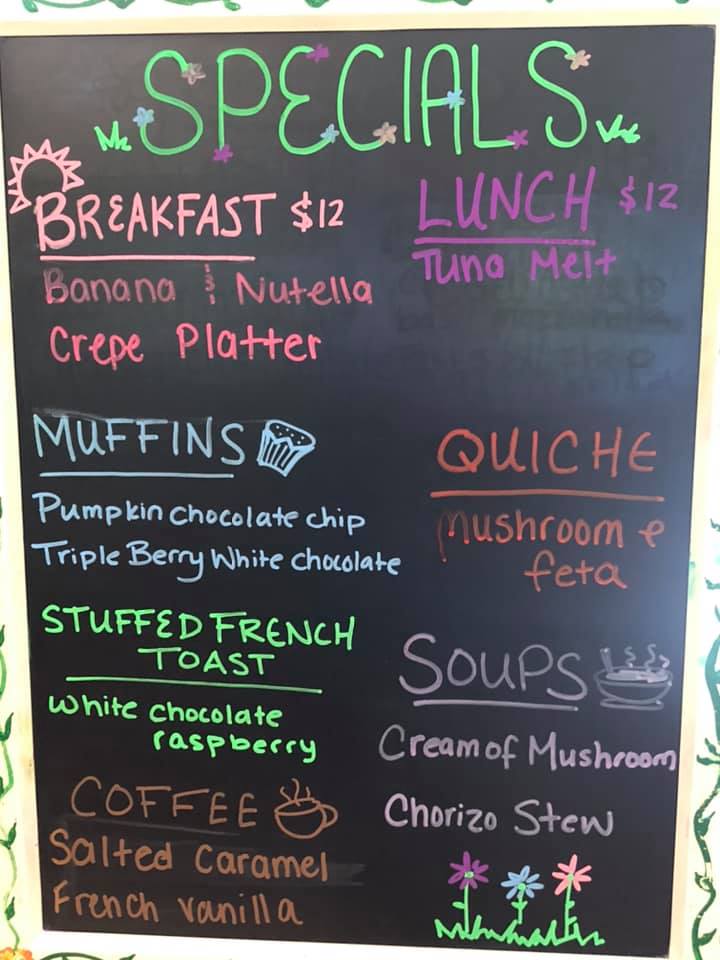 SPECIALS
BREAKFAST $12
Banana & Nutella
Crepe Platter
LUNCH $12
Tuna Melt
MUFFINS
Pumpkin chocolate chip
Triple Berry White chocolate
QUICHE
Mushroom &
feta
STUFFED FRENCH
TOAST
White chocolate
raspberry
SOUPS
Cream of Mushroom
Chorizo Stew
COFFEE
Salted Caramel
French vanilla